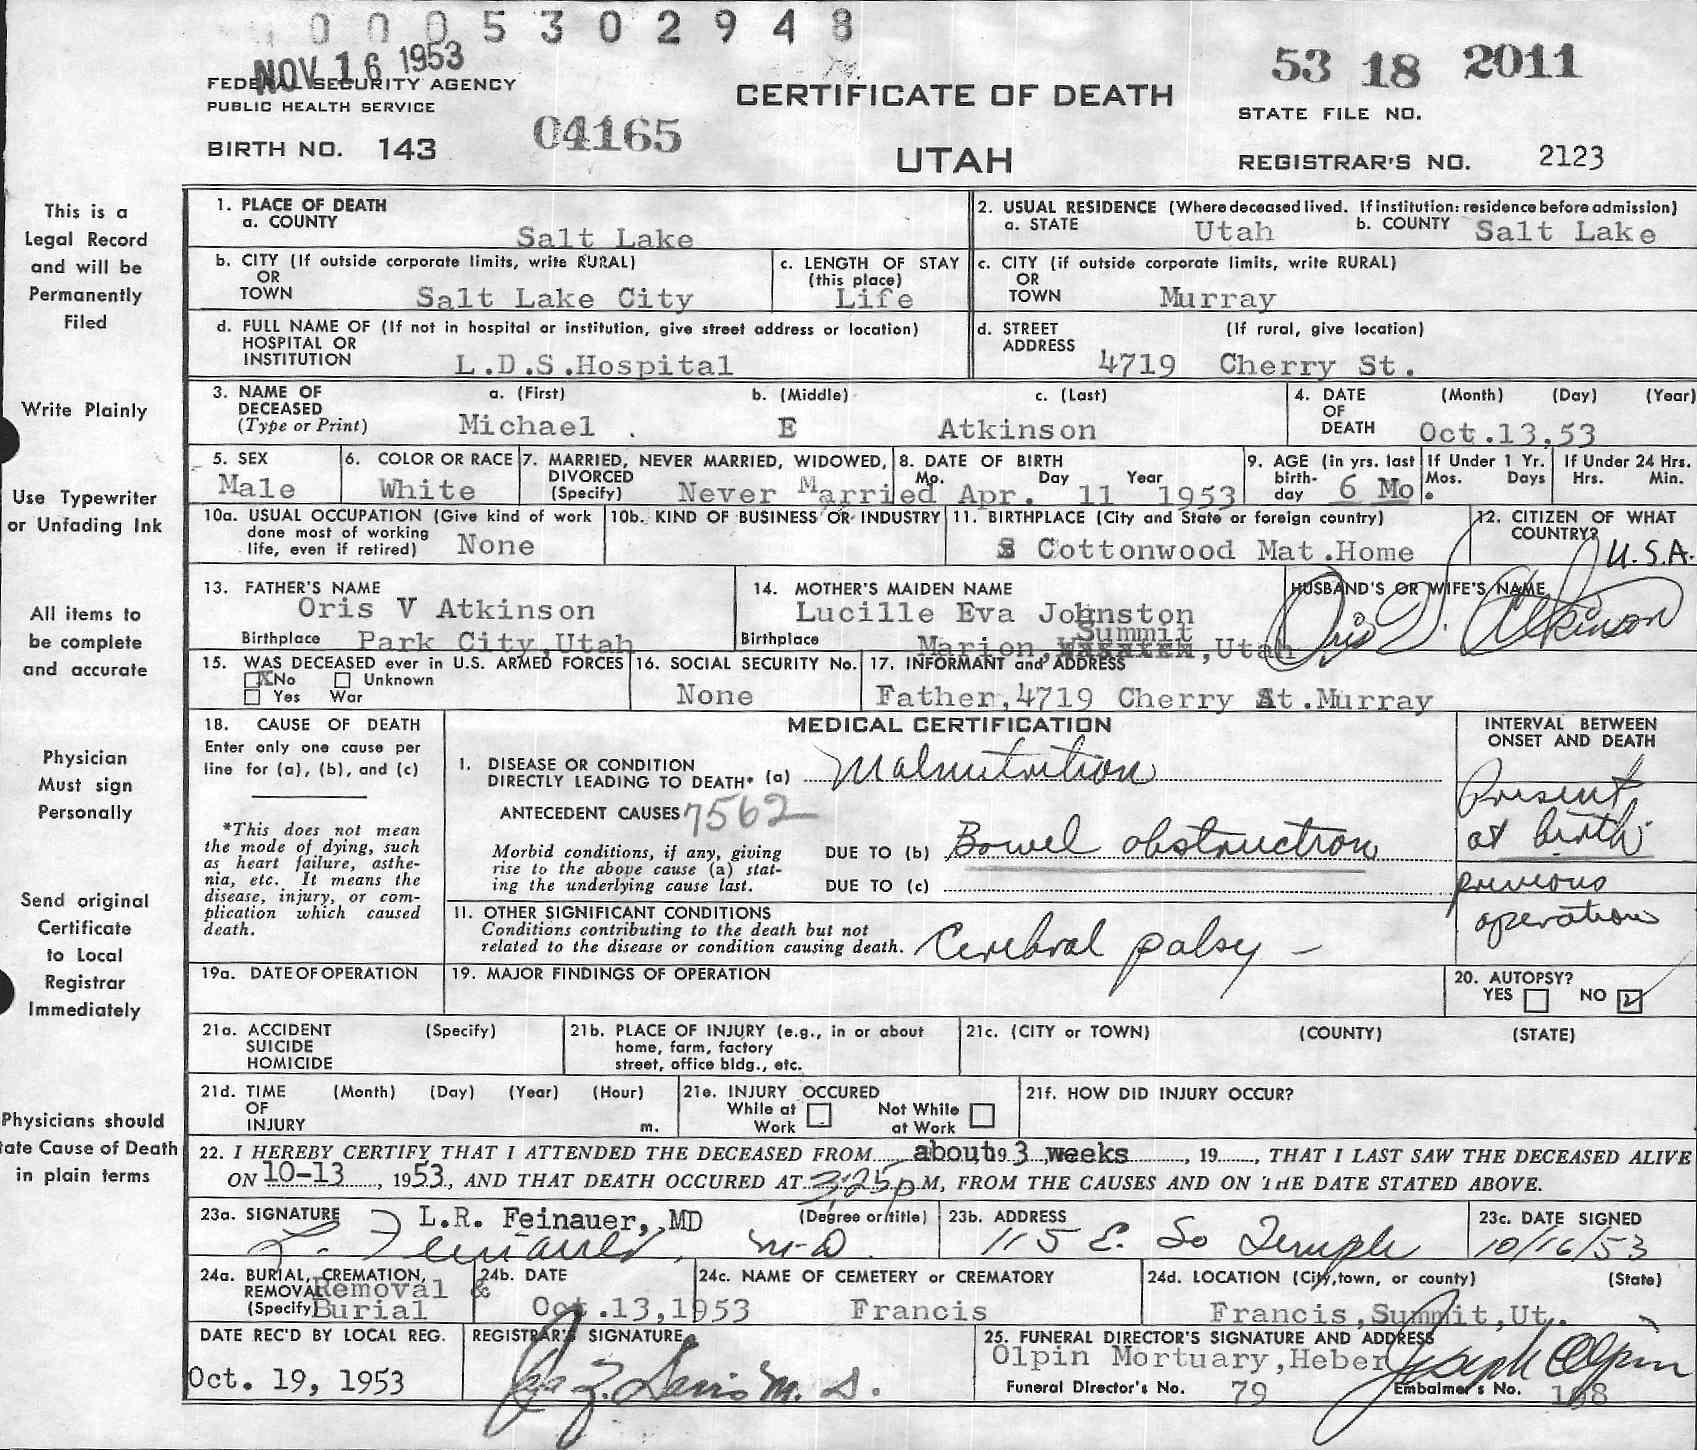 0 0 0 5 3 0 2 9 4 8
NOV 16 1953
53 18 2011
FEDERAL SECURITY AGENCY
PUBLIC HEALTH SERVICE
CERTIFICATE OF DEATH
STATE FILE NO.
BIRTH NO. 143
04165
UTAH
REGISTRAR'S NO. 2123
This is a
Legal Record
and will be
Permanently
Filed
Write Plainly
Use Typewriter
or Unfading Ink
All items to
be complete
and accurate
Physician
Must sign
Personally
Send original
Certificate
to Local
Registrar
Immediately
Physicians should
tate Cause of Death
in plain terms
1. PLACE OF DEATH
a. COUNTY
Salt Lake
2. USUAL RESIDENCE (Where deceased lived. If institution: residence before admission)
a. STATE Utah b. COUNTY Salt Lake
b. CITY (If outside corporate limits, write RURAL)
OR
TOWN Salt Lake City
c. LENGTH OF STAY
(this place)
Life
c. CITY (if outside corporate limits, write RURAL)
OR
TOWN Murray
d. FULL NAME OF (If not in hospital or institution, give street address or location)
HOSPITAL OR
INSTITUTION L.D.S.Hospital
d. STREET (If rural, give location)
ADDRESS 4719 Cherry St.
3. NAME OF a. (First) b. (Middle) c. (Last)
DECEASED
(Type or Print) Michael . E Atkinson
4. DATE (Month) (Day) (Year)
OF
DEATH Oct.13,53
5. SEX
Male
6. COLOR OR RACE
White
7. MARRIED, NEVER MARRIED, WIDOWED,
DIVORCED
(Specify) Never Married
8. DATE OF BIRTH
Mo. Day Year
Apr. 11 1953
9. AGE (in yrs. last
birth-
day 6 Mo.
If Under 1 Yr.
Mos. Days
If Under 24 Hrs.
Hrs. Min.
10a. USUAL OCCUPATION (Give kind of work
done most of working
life, even if retired) None
10b. KIND OF BUSINESS OR INDUSTRY
11. BIRTHPLACE (City and State or foreign country)
Cottonwood Mat.Home
12. CITIZEN OF WHAT
COUNTRY?
U.S.A.
13. FATHER'S NAME
Oris V Atkinson
Birthplace Park City,Utah
14. MOTHER'S MAIDEN NAME
Lucille Eva Johnston
Summit
Birthplace Marion, ,Utah
HUSBAND'S OR WIFE'S NAME
Oris V. Atkinson
15. WAS DECEASED ever in U.S. ARMED FORCES
X No Unknown
Yes War
16. SOCIAL SECURITY No.
None
17. INFORMANT and ADDRESS
Father,4719 Cherry St.Murray
18. CAUSE OF DEATH
Enter only one cause per
line for (a), (b), and (c)
*This does not mean
the mode of dying, such
as heart failure, asthe-
nia, etc. It means the
disease, injury, or com-
plication which caused
death.
MEDICAL CERTIFICATION
I. DISEASE OR CONDITION
DIRECTLY LEADING TO DEATH* (a) Malnutrition
ANTECEDENT CAUSES 7562
Morbid conditions, if any, giving
rise to the above cause (a) stat-
ing the underlying cause last.
DUE TO (b) Bowel obstruction
DUE TO (c)
11. OTHER SIGNIFICANT CONDITIONS
Conditions contributing to the death but not
related to the disease or condition causing death. Cerebral palsy –
INTERVAL BETWEEN
ONSET AND DEATH
Present
at birth
previous
operation
19a. DATE OF OPERATION
19. MAJOR FINDINGS OF OPERATION
20. AUTOPSY?
YES NO
21a. ACCIDENT (Specify)
SUICIDE
HOMICIDE
21b. PLACE OF INJURY (e.g., in or about
home, farm, factory
street, office bldg., etc.
21c. (CITY or TOWN) (COUNTY) (STATE)
21d. TIME (Month) (Day) (Year) (Hour)
OF
INJURY m.
21e. INJURY OCCURED
While at Not While
Work at Work
21f. HOW DID INJURY OCCUR?
22. I HEREBY CERTIFY THAT I ATTENDED THE DECEASED FROM about 19 3 weeks, 19......, THAT I LAST SAW THE DECEASED ALIVE
ON 10-13, 1953, AND THAT DEATH OCCURED AT 3:25 p M, FROM THE CAUSES AND ON THE DATE STATED ABOVE.
23a. SIGNATURE L.R. Feinauer, MD (Degree or title)
L. Feinauer M-D
23b. ADDRESS
115 E. So Temple
23c. DATE SIGNED
10/16/53
24a. BURIAL, CREMATION,
REMOVAL Removal &
(Specify) Burial
24b. DATE
Oct.13,1953
24c. NAME OF CEMETERY or CREMATORY
Francis
24d. LOCATION (City, town, or county) (State)
Francis,Summit,Ut.
DATE REC'D BY LOCAL REG.
Oct. 19, 1953
REGISTRAR'S SIGNATURE
Davis M. D.
25. FUNERAL DIRECTOR'S SIGNATURE AND ADDRESS
Olpin Mortuary,Heber Joseph Olpin
Funeral Director's No. 79 Embalmer's No.